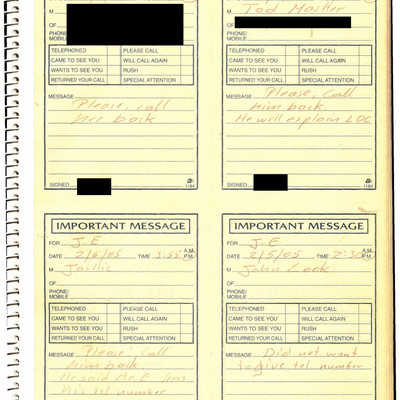 M
OF
PHONE/
MOBILE
TELEPHONED PLEASE CALL
CAME TO SEE YOU WILL CALL AGAIN
WANTS TO SEE YOU RUSH
RETURNED YOUR CALL SPECIAL ATTENTION
MESSAGE Please, call
her back
SIGNED
1184
M Tod Master
OF
PHONE/
MOBILE
TELEPHONED PLEASE CALL
CAME TO SEE YOU WILL CALL AGAIN
WANTS TO SEE YOU RUSH
RETURNED YOUR CALL SPECIAL ATTENTION
MESSAGE Please, call
him back.
He will explain LOC
SIGNED
1184
IMPORTANT MESSAGE
FOR J.E
DATE 2/6/05 TIME 3:55 A.M. P.M.
M
OF
PHONE/
MOBILE
TELEPHONED PLEASE CALL
CAME TO SEE YOU WILL CALL AGAIN
WANTS TO SEE YOU RUSH
RETURNED YOUR CALL SPECIAL ATTENTION
MESSAGE Please, call
him back
He said Mr. E has
his tel number
IMPORTANT MESSAGE
FOR J.E
DATE 2/5/05 TIME 2:30 A.M. P.M.
M John
OF
PHONE/
MOBILE
TELEPHONED PLEASE CALL
CAME TO SEE YOU WILL CALL AGAIN
WANTS TO SEE YOU RUSH
RETURNED YOUR CALL SPECIAL ATTENTION
MESSAGE Did not want
to give tel number